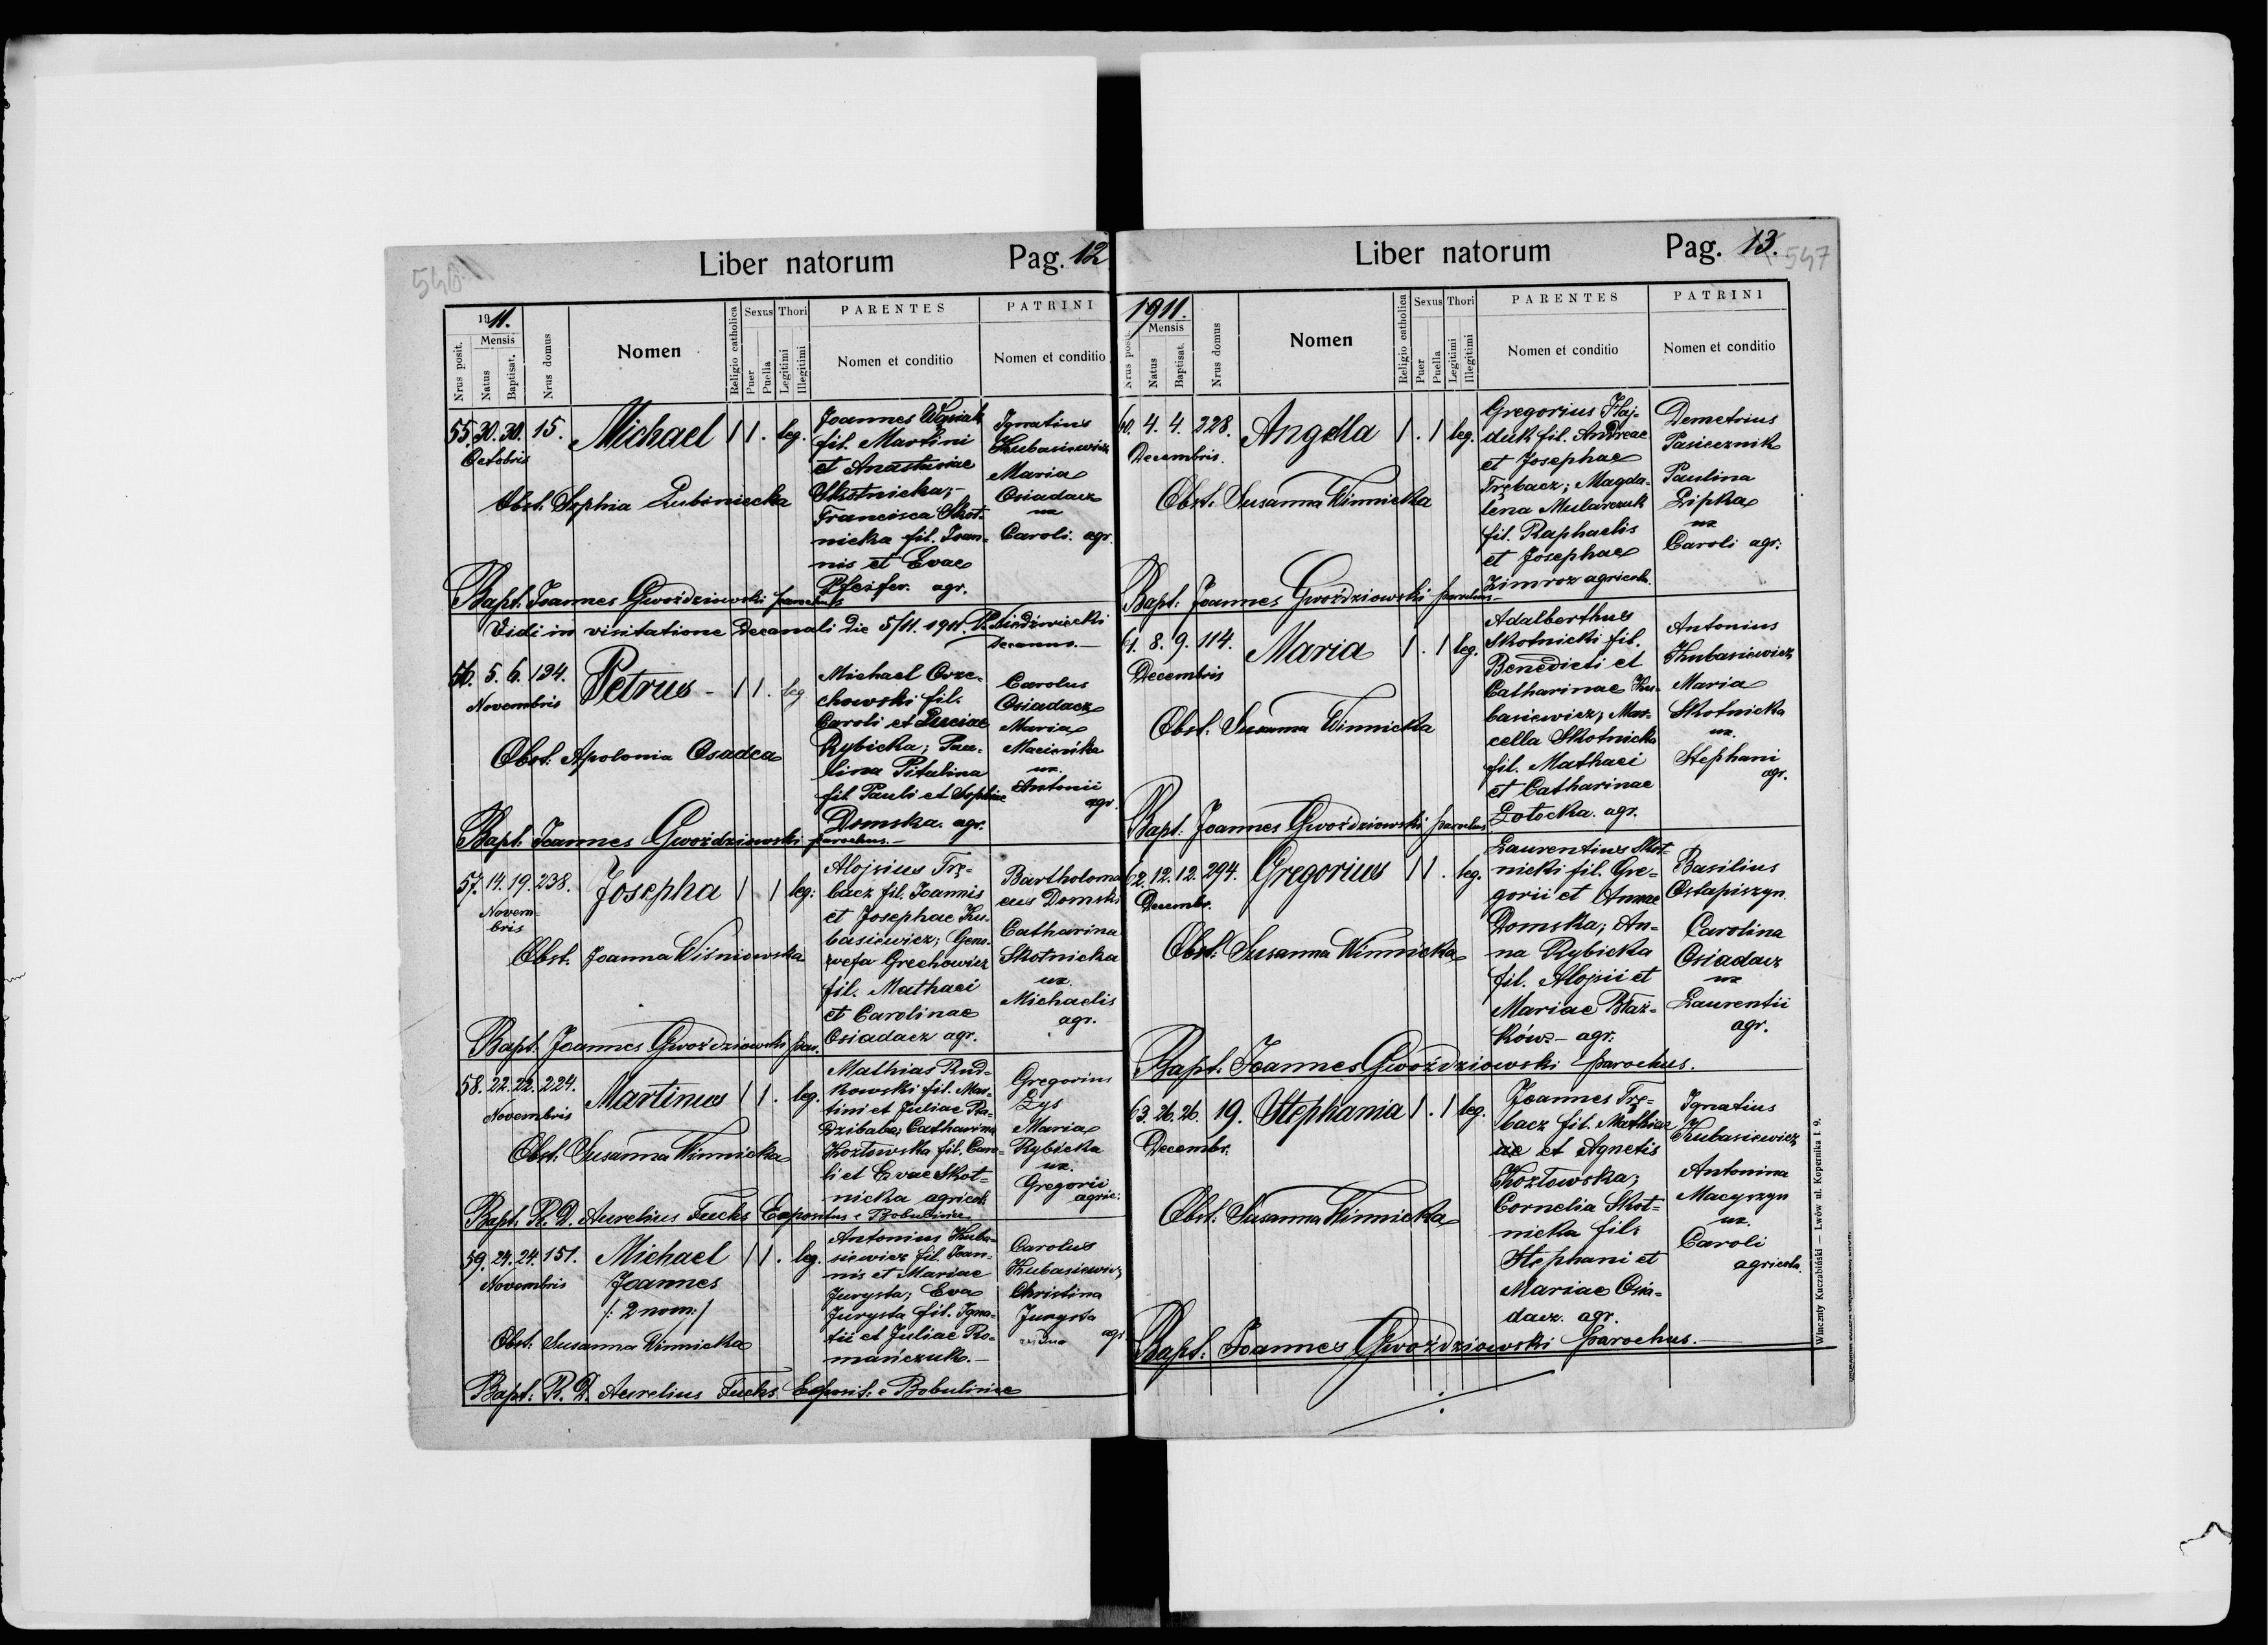 Liber natorum Pag. 12
546
1911.
Mensis
Nrus posit.
Natus
Baptisat.
Nrus domus
Nomen
Religio catholica
Sexus
Puer
Puella
Thori
Legitimi
Illegitimi
PARENTES
Nomen et conditio
PATRINI
Nomen et conditio
55. 30. 30. 15. Michael 1 1. leg.
Octobris
Obst. Sophia Lubiniecka
Joannes Wasiak
fil. Martini
et Anastasiae
Skotnicka;
Francisca Skot-
nicka fil. Joan-
nis et Evae
Pfeifer. agr.
Ignatius
Kubasiewicz
Maria
Osiadacz
ux
Caroli. agr.
Bapt. Joannes Gwoździowski parochus
Vidi in visitatione Decanali die 5/11. 1911.
Decanus.
56. 5. 6. 194. Petrus - 1 1. leg
Novembris
Obst: Apolonia Osadca
Michael Orze-
chowski fil.
Caroli et Luciae
Rybicka; Pau-
lina Pitulina
fil. Pauli et Sophiae
Domska. agr.
Carolus
Osiadacz
Maria
ux.
Antonii
agr.
Bapt. Joannes Gwoździowski parochus.
57. 14. 19. 238. Josepha 1 1 leg:
Novem-
bris
Obst. Joanna Wiśniowska
Alojsius Trę-
bacz fil. Joannis
et Josephae Ku-
basiewicz; Geno-
vefa Grechowicz
fil. Mathaei
et Carolinae
Osiadacz agr.
Bartholoma
eus Domski
Catharina
Skotnicka
ux.
Michaelis
agr.
Bapt. Joannes Gwoździowski par.
58. 22. 22. 224. Martinus 1 1. leg.
Novembris
Obst. Susanna Winnicka
Mathias Rud-
kowski fil. Mar-
tini et Juliae Ba-
Dzibaba; Catharina
Kozłowska fil. Caro-
li et Evae Skot-
nicka agricol.
Gregorius
Zys
Maria
Rybicka
ux.
Gregorii
agric:
Bapt. R. D. Aurelius Fuchs Expositus e Bobulińce
59. 24. 24. 151. Michael 1 1. leg.
Novembris Joannes
/: 2 nom:/
Obst. Susanna Winnicka
Antonius Kuba-
siewicz fil. Joan-
nis et Mariae
Jurysta; Eva
Jurysta fil. Igna-
tii et Juliae Ro-
mańczuk.
Carolus
Kubasiewicz
Christina
Jurysta
vidua agr.
Bapt. R. D. Aurelius Fuchs Exposit. e Bobulińce
Liber natorum Pag. 13.
547
1911.
Mensis
Nrus posit.
Natus
Baptisat.
Nrus domus
Nomen
Religio catholica
Sexus
Puer
Puella
Thori
Legitimi
Illegitimi
PARENTES
Nomen et conditio
PATRINI
Nomen et conditio
60. 4. 4. 228. Angella 1. 1 leg.
Decembris.
Obst: Susanna Winnicka
Gregorius Haj-
duk fil. Andreae
et Josephae
Trębacz; Magda-
lena Mularczuk
fil. Raphaelis
et Josephae
Zimroz agricol.
Demetrius
Pasicznik
Paulina
Lipka
ux
Caroli agr:
Bapt: Joannes Gwoździowski parochus
61. 8. 9. 114. Maria 1. 1 leg.
Decembris
Obst: Susanna Winnicka
Adalberthus
Skotnicki fil.
Benedicti et
Catharinae Ku-
basiewicz; Mar-
cella Skotnicka
fil. Mathaei
et Catharinae
Potocka. agr.
Antonius
Kubasiewicz
Maria
Skotnicka
ux.
Stephani
agr.
Bapt: Joannes Gwoździowski parochus
62. 12. 12. 294. Gregorius 1 1. leg.
Decembr.
Obst: Susanna Winnicka
Laurentius Skot-
nicki fil. Gre-
gorii et Annae
Domska; An-
na Rybicka
fil. Alojsii et
Mariae Błaż-
ków - agr.
Basilius
Ostapiszyn
Carolina
Osiadacz
ux
Laurentii
agr.
Bapt. Joannes Gwoździowski parochus.
63. 26. 26. 19. Stephania 1. 1 leg.
Decembr.
Obst: Susanna Winnicka
Joannes Trę-
bacz fil. Mathiae
et Agnetis
Kozłowska;
Cornelia Skot-
nicka fil.
Stephani et
Mariae Osia-
dacz. agr.
Ignatius
Kubasiewicz
Antonina
Macyszyn
ux.
Caroli
agricola.
Bapt: Joannes Gwoździowski parochus.
Winczenty Kuczabiński — Lwów ul. Kopernika l. 9.